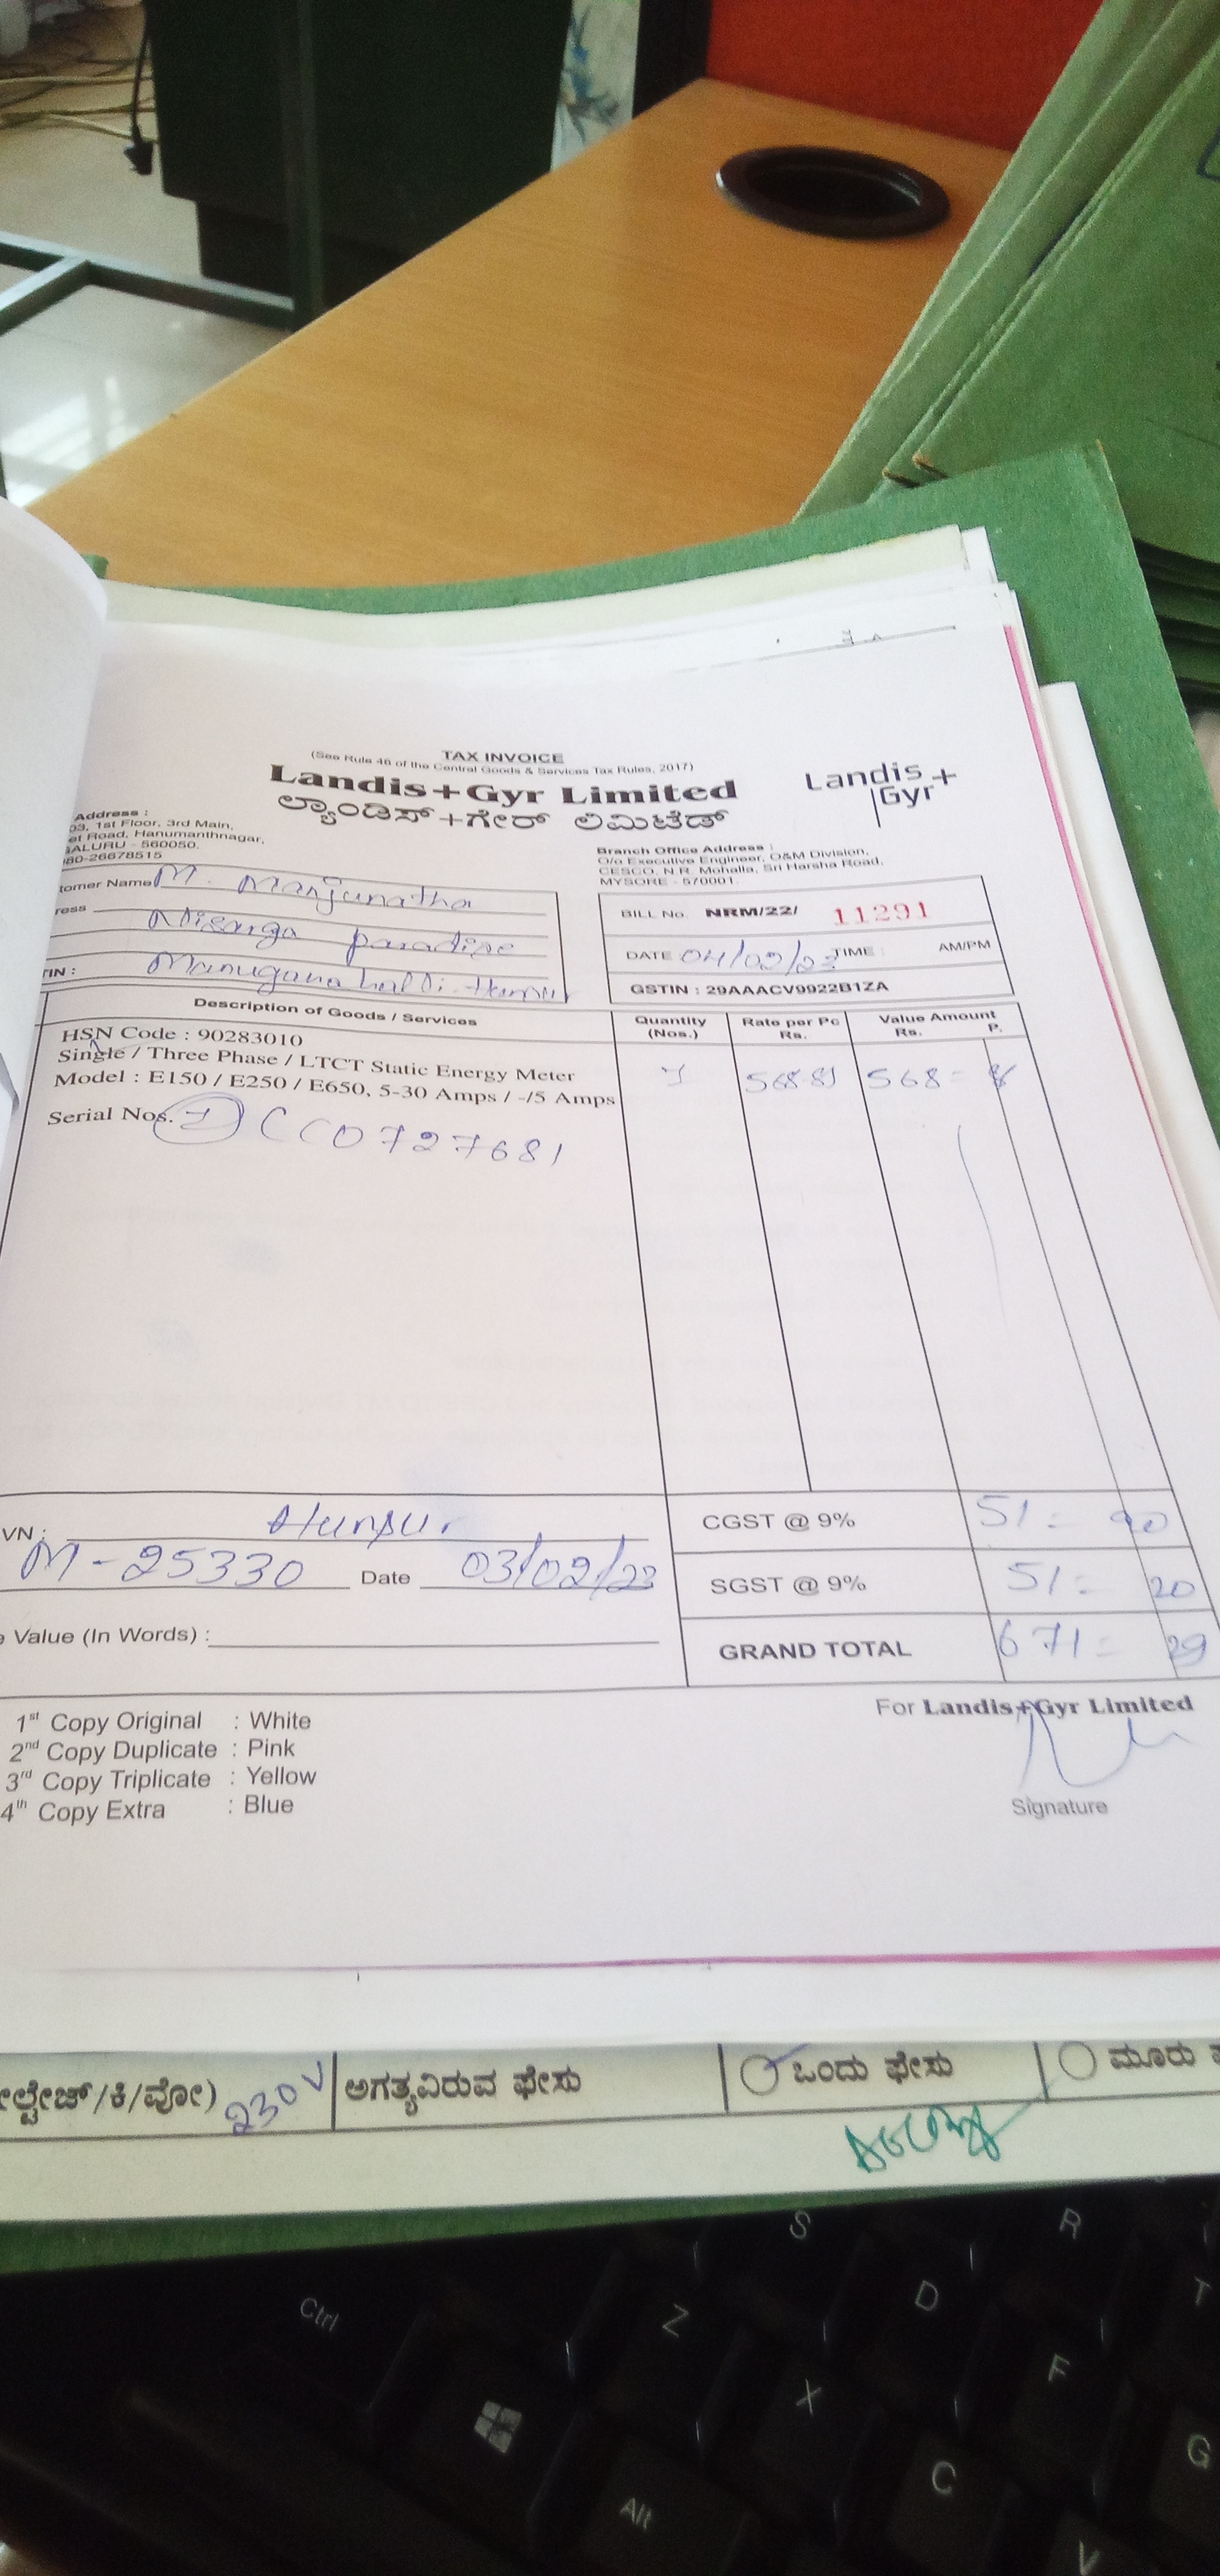 TAX INVOICE
(See Rule 46 of the Central Goods & Services Tax Rules, 2017)
Landis+Gyr Limited
ಲ್ಯಾಂಡಿಸ್+ಗೇರ್ ಲಿಮಿಟೆಡ್
Landis+
Gyr
Address :
03, 1st Floor, 3rd Main,
et Road, Hanumanthnagar,
ALURU - 560050.
080-26678515
Branch Office Address :
O/o Executive Engineer, O&M Division,
CESCO, N.R. Mohalla, Sri Harsha Road,
MYSORE - 570001.
tomer Name M. Manjunatha
ress Nisarga paradise
TIN : Manuganahalli. Hunsur
BILL No. NRM/22/ 11291
DATE 04/02/23 TIME : AM/PM
GSTIN : 29AAACV9922B1ZA
Description of Goods / Services
Quantity (Nos.)
Rate per Pc Rs.
Value Amount Rs. P.
HSN Code : 90283010
Single / Three Phase / LTCT Static Energy Meter
Model : E150 / E250 / E650, 5-30 Amps / -/5 Amps
1 568-81 568=
Serial Nos. 1) CC0727681
VN : Hunsur
M-25330 Date 03/02/23
Value (In Words) :
CGST @ 9% 51= 20
SGST @ 9% 51= 20
GRAND TOTAL 671= 29
1st Copy Original : White
2nd Copy Duplicate : Pink
3rd Copy Triplicate : Yellow
4th Copy Extra : Blue
For Landis+Gyr Limited
Signature
ೇಲ್ಟೇಜ್/ಕಿ/ವೋ) 230V
ಅಗತ್ಯವಿರುವ ಫೇಸು
ಒಂದು ಫೇಸು
ಮೂರು
S R
Ctrl Z D T
X F
C G
Alt V